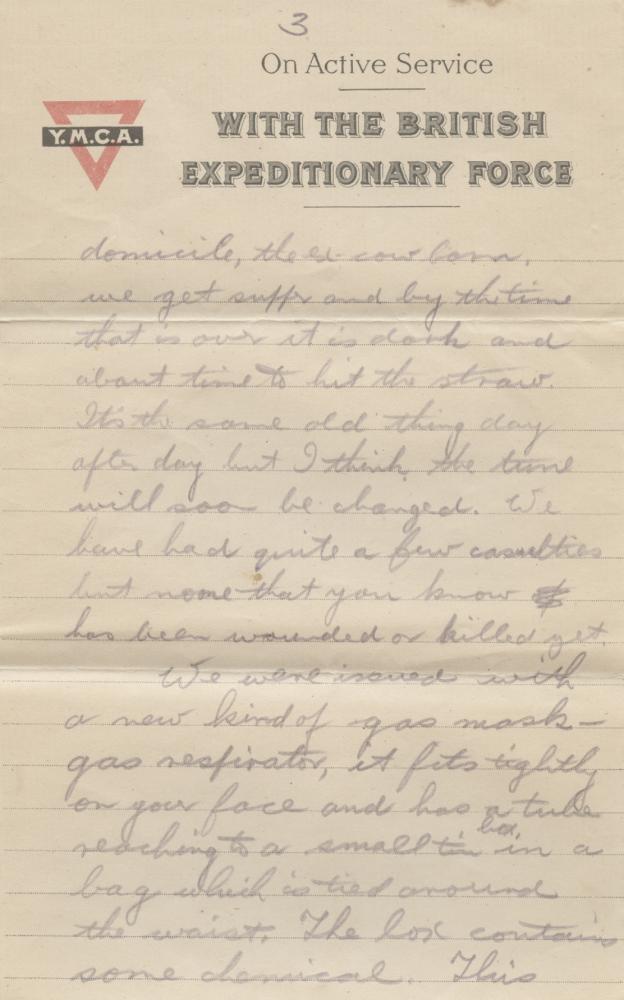 3
On Active Service
Y.M.C.A.
WITH THE BRITISH
EXPEDITIONARY FORCE
domicile, the ex-cow barn,
we get supper and by the time
that is over it is dark and
about time to hit the straw.
It's the same old thing day
after day but I think the time
will soon be changed. We
have had quite a few casulties
but none that you know
has been wounded or killed yet.
We were issued with
a new kind of gas mask-
gas respirator, it fits tightly
on your face and has a tube
reaching to a small tin box in a
bag which is tied around
the waist. The box contains
some chemical. This